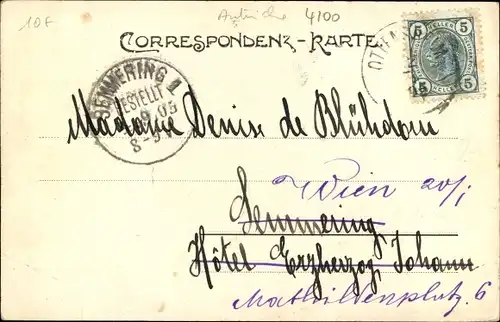 10F
Autriche 4100
CORRESPONDENZ-KARTE.
5 HELLER 5
5 5
SEMMERING 1
BESTELLT
05
8-9
Madame Denise de Blühdorn
Wien XX/1
Semmering
Hôtel Erzherzog Johann
Mathildenplatz 6